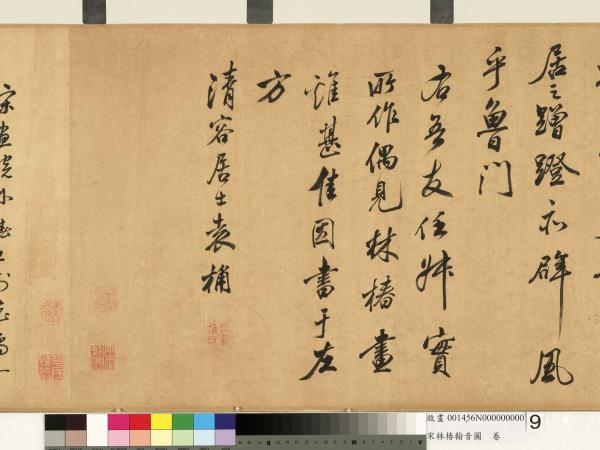 居之蹭蹬示辟風
乎魯門
右吾友任叔實
所作偶見林椿畫
雖甚佳因書于左
方
清容居士袁桷
宋畫院
故畫 001456N000000000
9
宋林椿翰音圖 卷